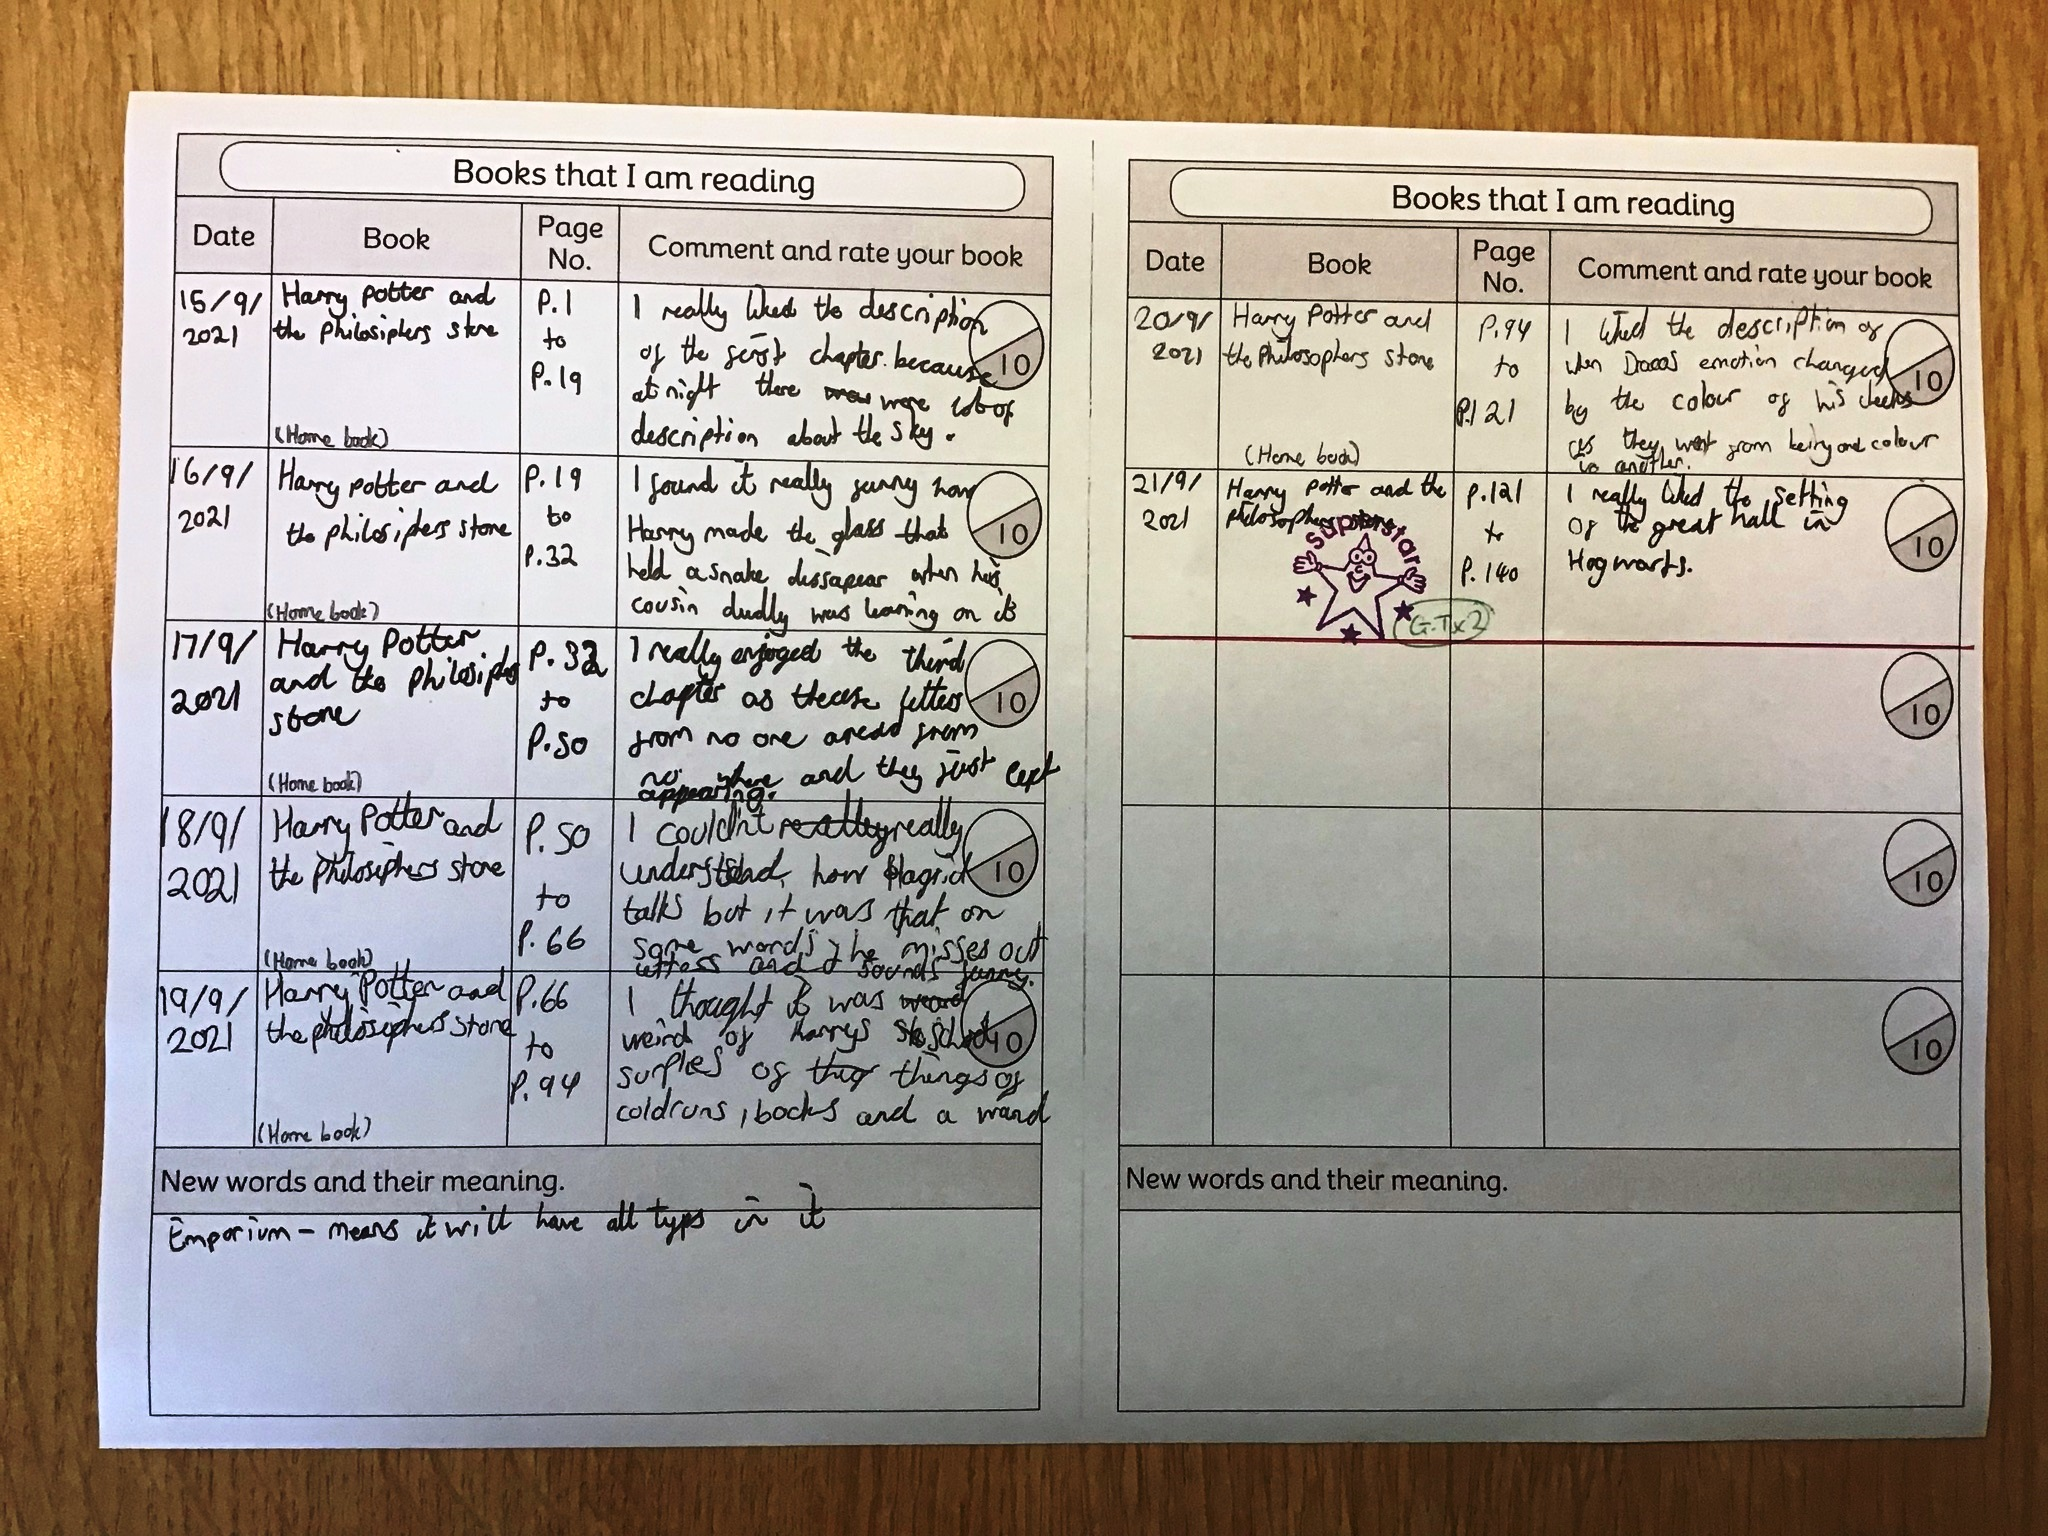 Books that I am reading
Date
Book
Page
No.
Comment and rate your book
15/9/
2021
Harry Potter and
the philosiphers stone
(Home book)
P.1
to
P.19
I really liked the description
of the first chapter. because
at night there were lot of
description about the sky.
10
16/9/
2021
Harry potter and
the philosiphers stone
(Home book)
P.19
to
P.32
I found it really funny how
Harry made the glass that
held a snake dissapear when his
cousin dudly was leaning on it
10
17/9/
2021
Harry Potter
and the philosiphers
stone
(Home book)
P.32
to
P.50
I really enjoyed the third
chapter as letters
from no one from
no where and they just cept
appearing.
10
18/9/
2021
Harry Potter and
the philosiphers stone
(Home book)
P.50
to
P.66
I couldn't really really
understand, how Hagrid
talks but it was that on
some words he misses out
letters and sounds funny.
10
19/9/
2021
Harry Potter and
the philosiphers stone
(Home book)
P.66
to
P.94
I thought it was
weird of Harrys school
surplies of things of
coldruns, books and a wand
10
New words and their meaning.
Emporium - means it will have all typs in it
Books that I am reading
Date
Book
Page
No.
Comment and rate your book
20/9/
2021
Harry Potter and
the Philosophers stone
(Home book)
P.94
to
P.121
I liked the description of
when emotion changed
by the colour of his cheeks
as they went from colour
to another.
10
21/9/
2021
Harry Potter and the
philosophers stone
superstar
G.T x 2
P.121
to
P.140
I really liked the setting
of the great hall in
Hogwarts.
10
10
10
10
New words and their meaning.